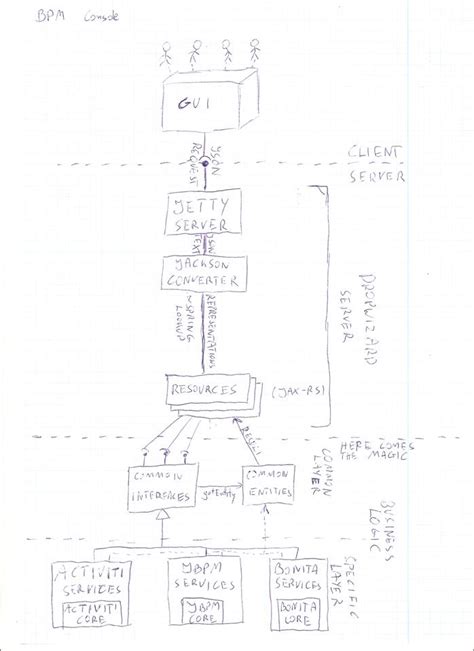 BPM Console
GUI
JSON
REQUEST
CLIENT
SERVER
JETTY
SERVER
JSON
TEXT
JACKSON
CONVERTER
REPRESENTATIONS
SPRING
LOOKUP
DROPWIZARD
SERVER
RESOURCES
(JAX-RS)
HERE COMES
THE MAGIC
RESULT
COMMON
INTERFACES
getEntity
COMMON
ENTITIES
COMMON
LAYER
BUSINESS
LOGIC
ACTIVITI
SERVICES
ACTIVITI
CORE
JBPM
SERVICES
JBPM
CORE
BONITA
SERVICES
BONITA
CORE
SPECIFIC
LAYER